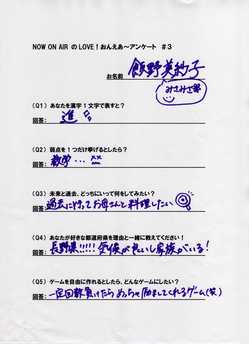 NOW ON AIR のLOVE!おんえあ～アンケート #3
お名前 飯野美紗子
みさみさ
(Q1) あなたを漢字1文字で表すと?
回答: 進
(Q2) 弱点を1つだけ挙げるとしたら?
回答: 数学…
(Q3) 未来と過去、どっちにいって何をしてみたい?
回答: 過去に行ってお母さんと料理したい
(Q4) あなたが好きな都道府県を理由と一緒に教えてください!
回答: 長野県!!!!! 空気がおいしい家族がいる!
(Q5) ゲームを自由に作れるとしたら、どんなゲームにしたい?
回答: 一定回数負けたらめっちゃ励ましてくれるゲーム(笑)